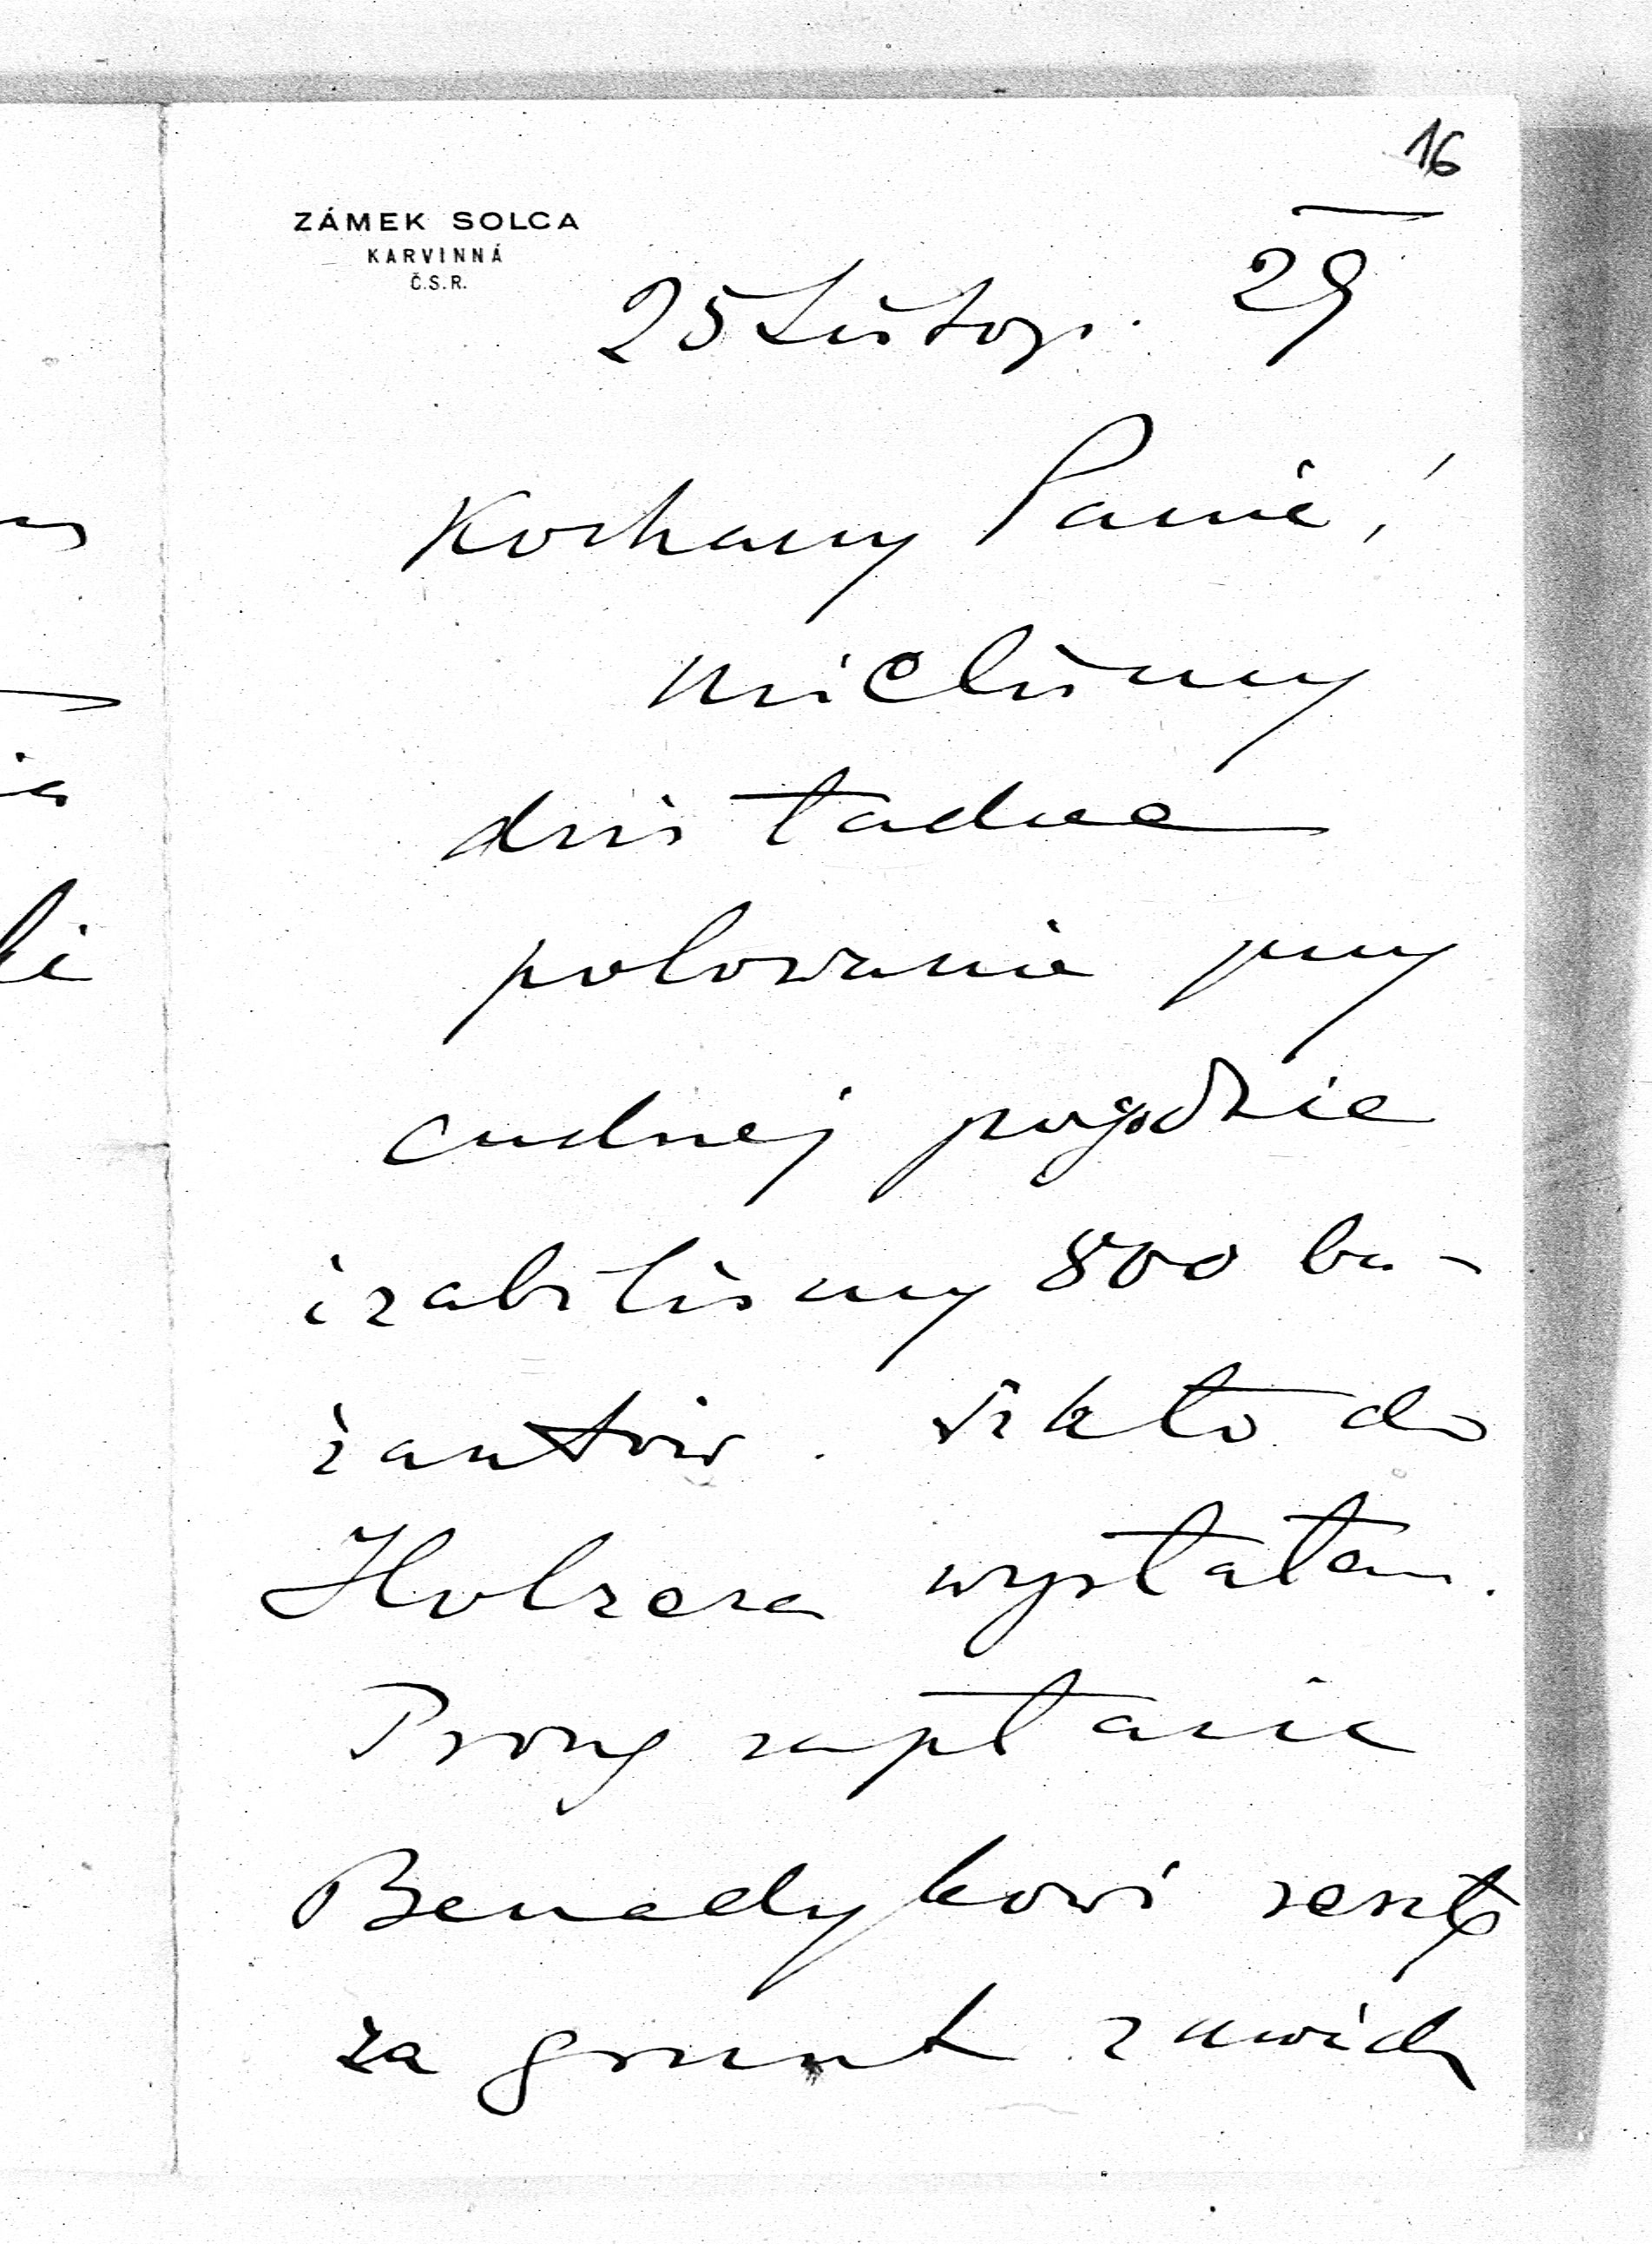 16
ZÁMEK SOLCA
KARVINNÁ
Č.S.R.
25 Listop. 29
Kochany Panie!
Mieliśmy
dziś ładne
polowanie przy
cudnej pogodzie
i zabiliśmy 800 ba-
żantów. do
Holzera wysłałam.
Proszę zapłacić
Benedykowi resztę
za grunt